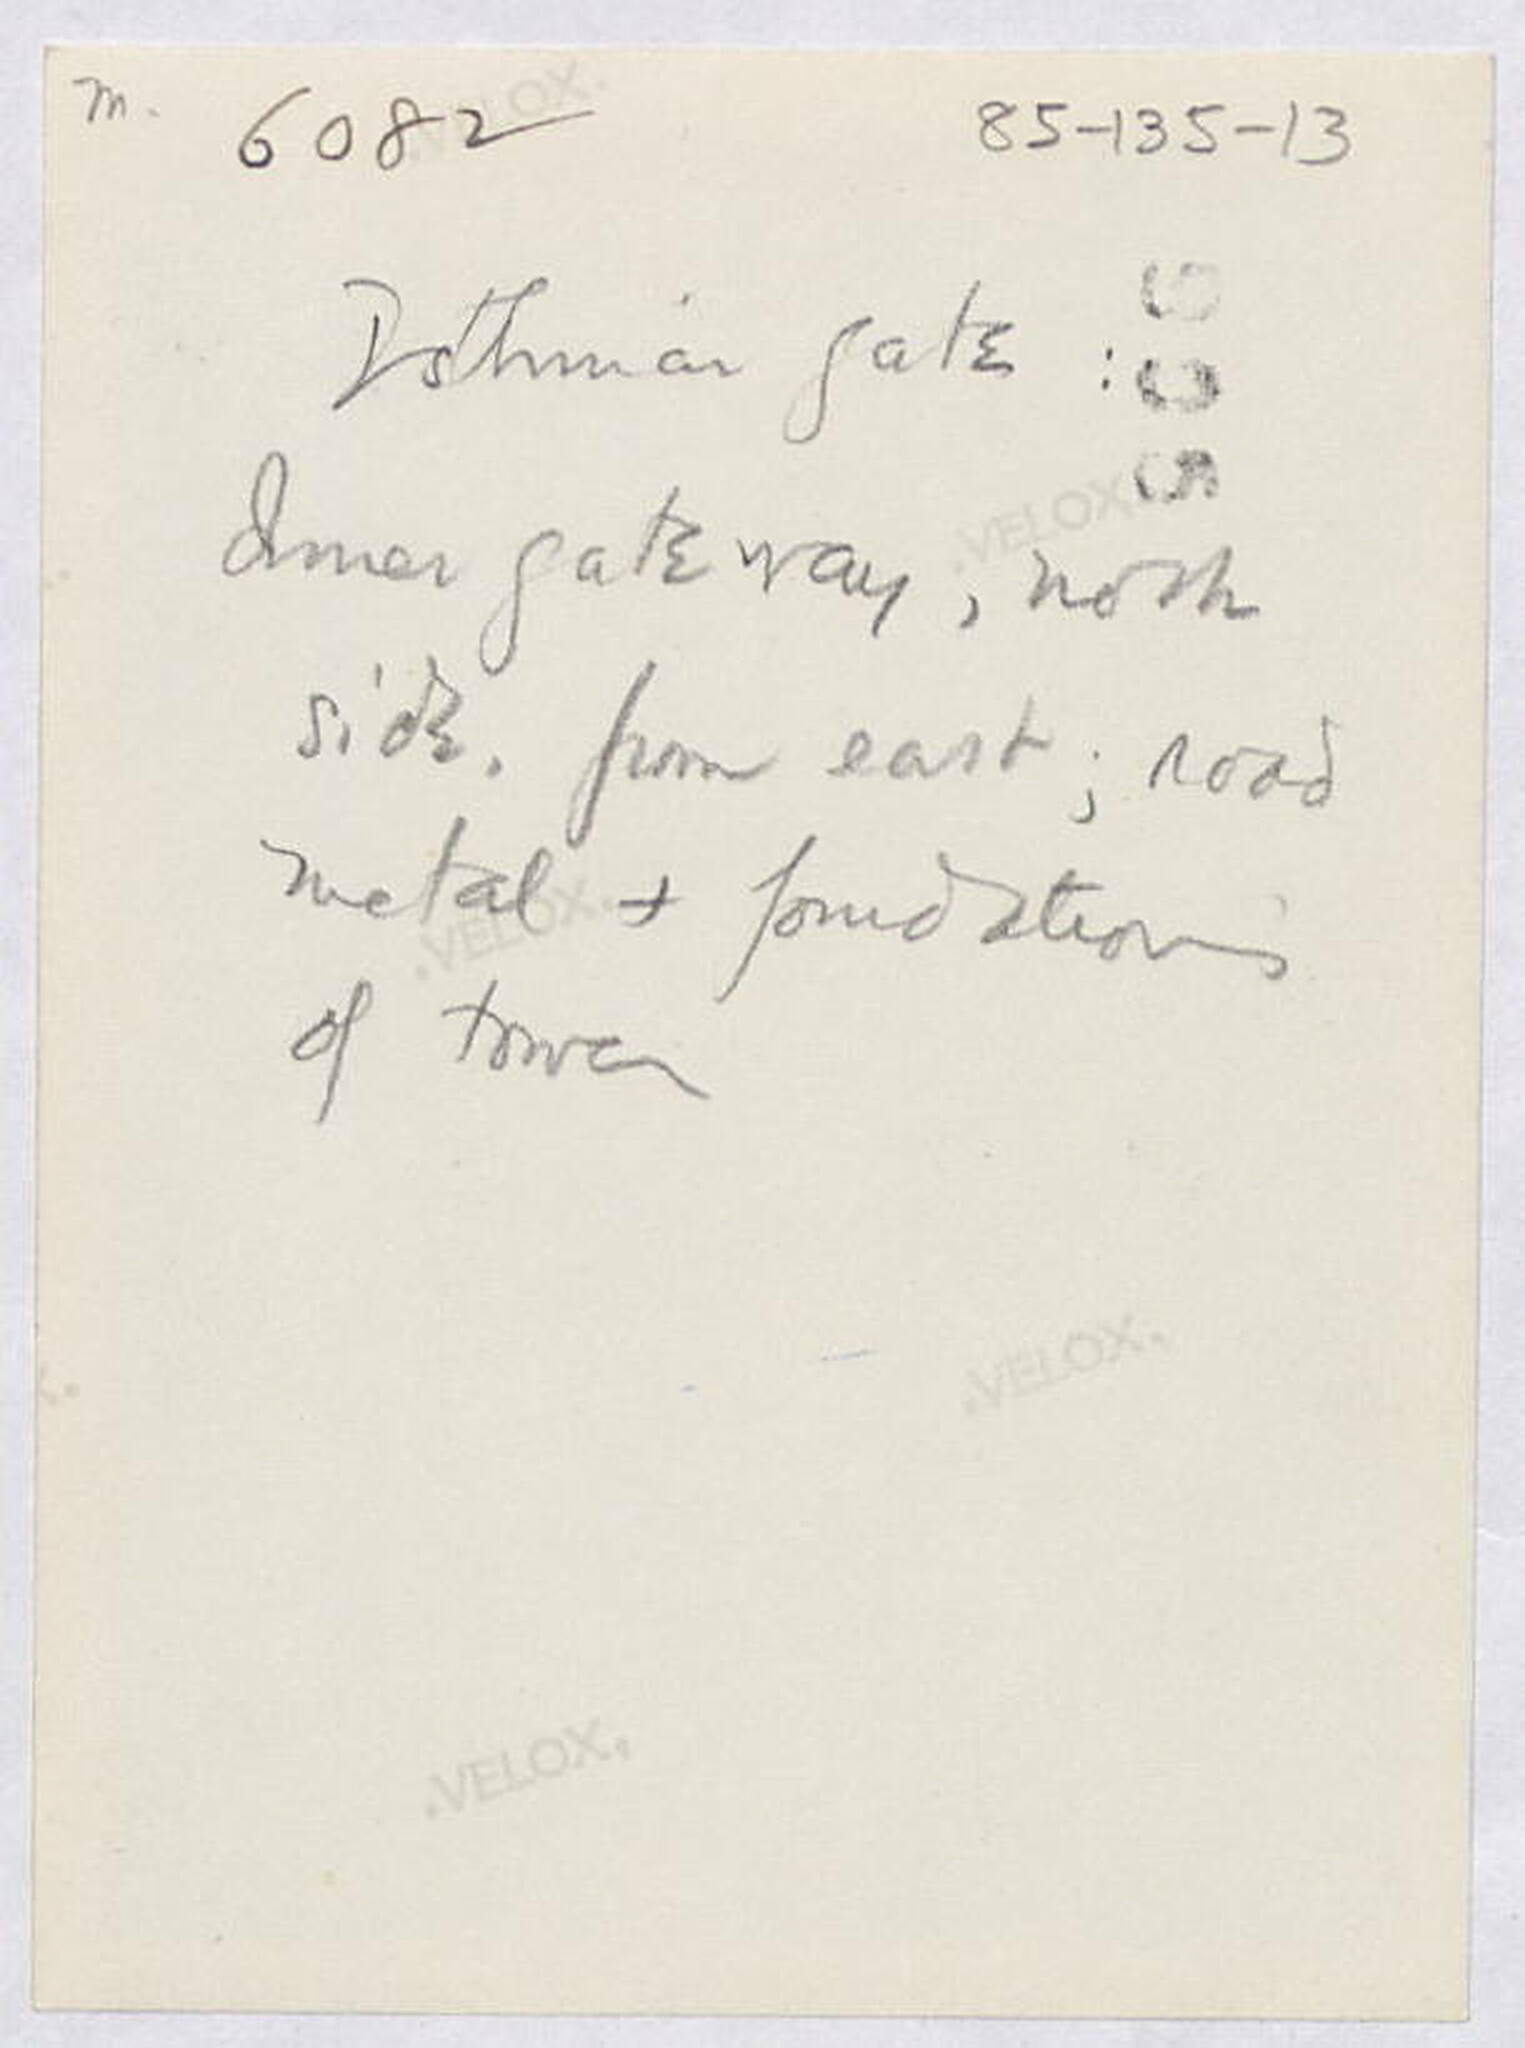 m. 6082 85-135-13
Isthmian gate :
Inner gateway, north
side. from east; road
metal + foundations
of tower
.VELOX.
.VELOX.
.VELOX.
.VELOX.
.VELOX.